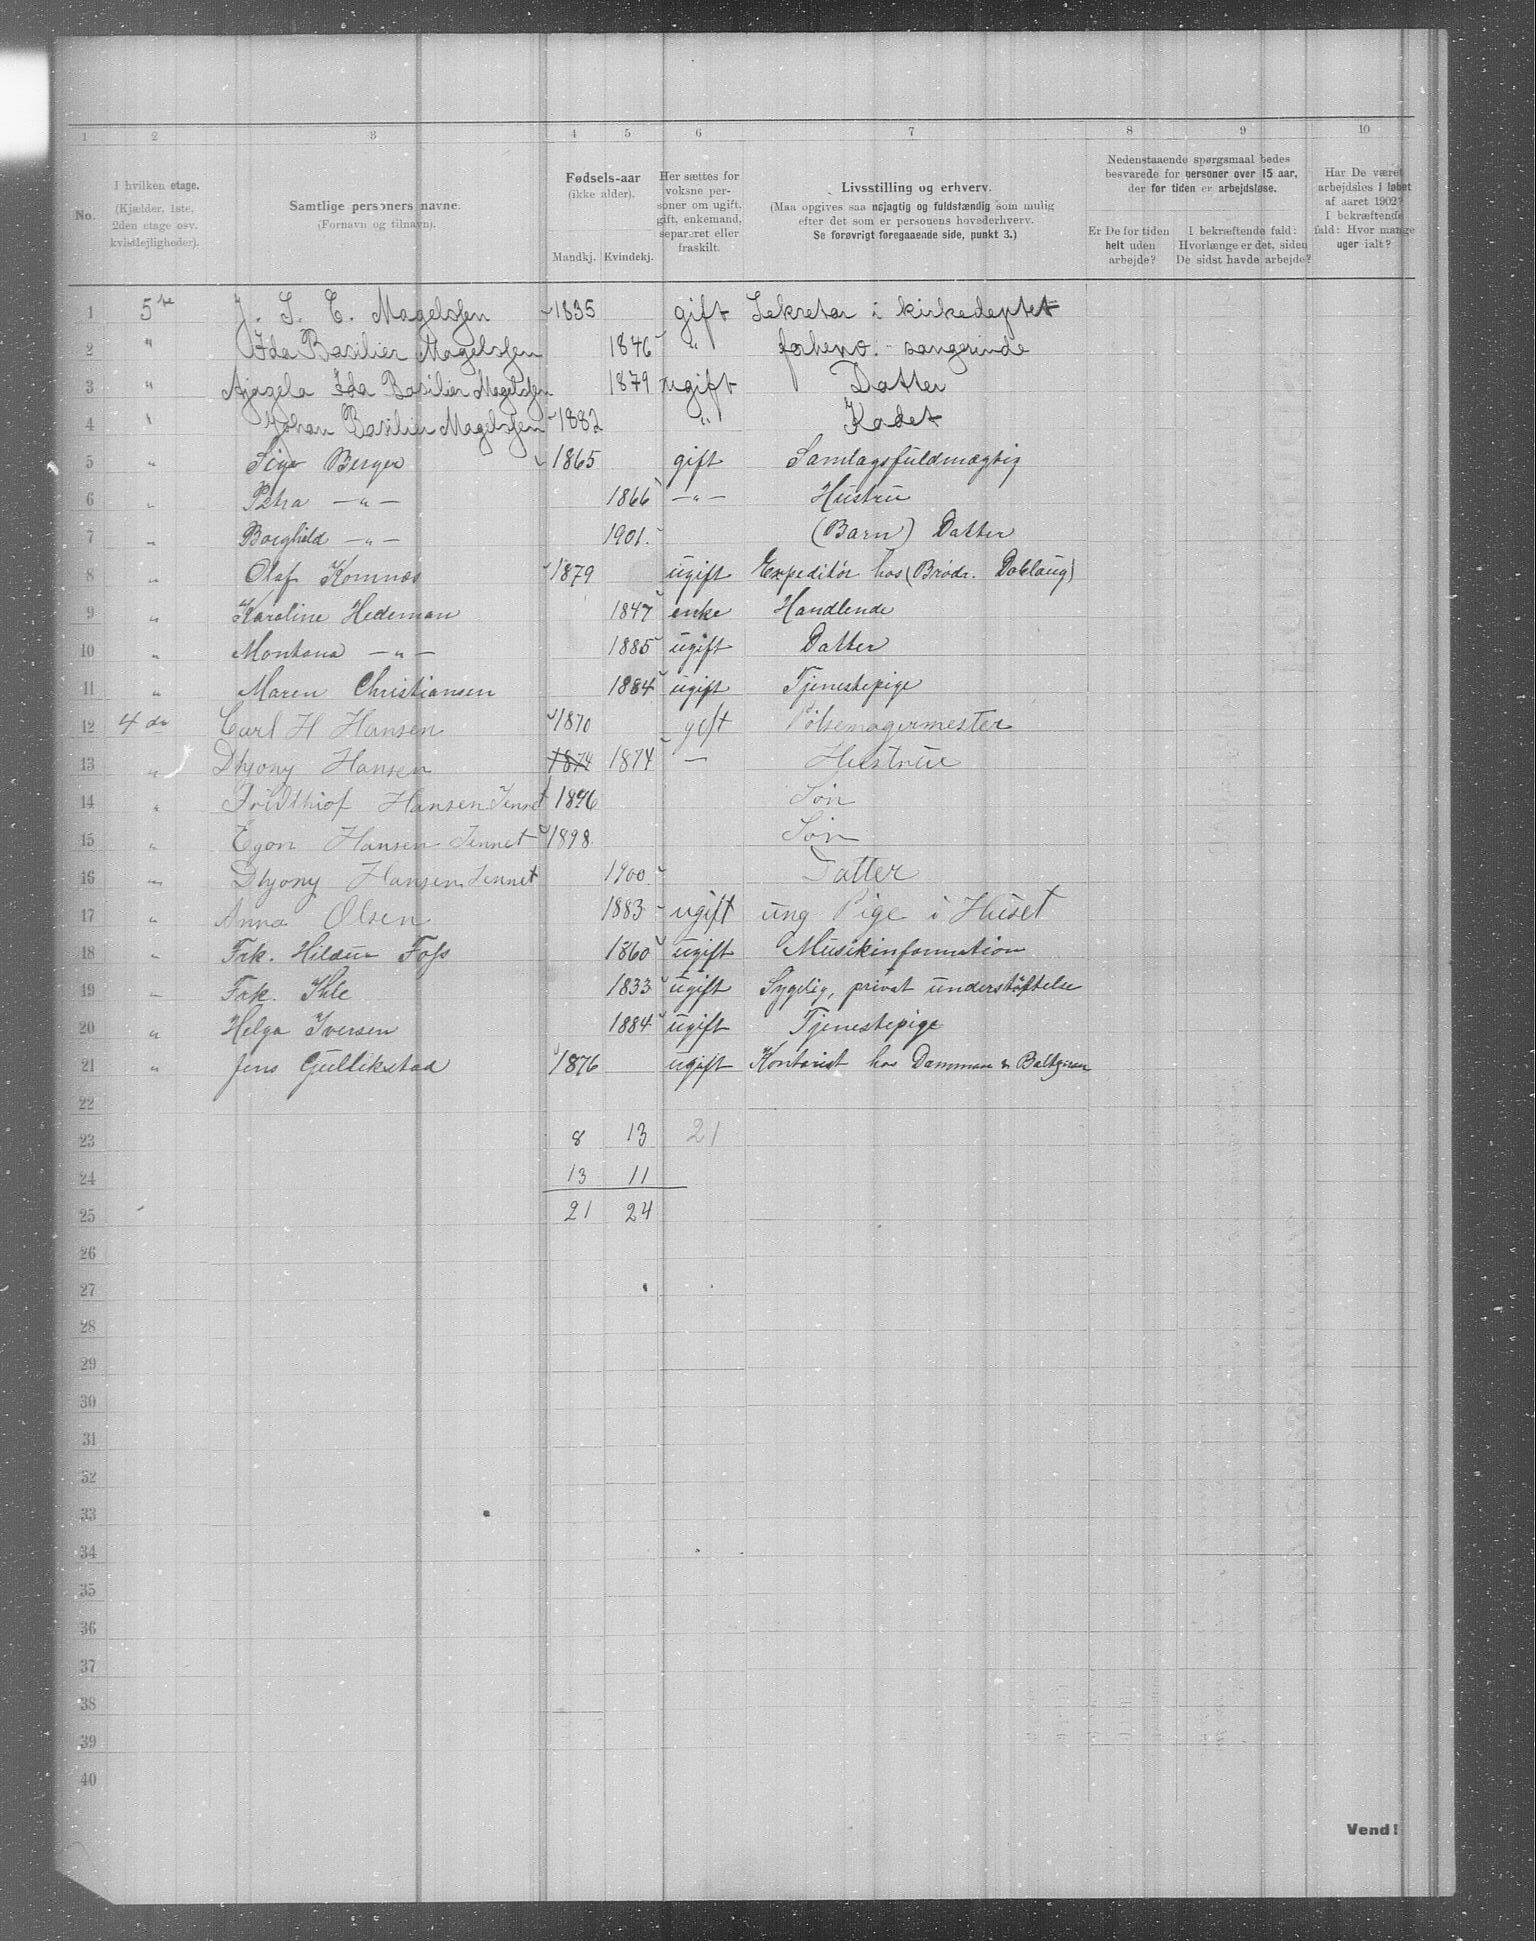 1 2 3 4 5 6 7 8 9 10
No.
I hvilken etage.
(Kjælder, 1ste,
2den etage osv.
kvistlejligheder).
Samtlige personers navne.
(Fornavn og tilnavn).
Fødsels-aar
(ikke alder).
Mandkj. Kvindekj.
Her sættes for
voksne per-
soner om ugift,
gift, enkemand,
separeret eller
fraskilt.
Livsstilling og erhverv.
(Maa opgives saa nøjagtig og fuldstændig som mulig
efter det som er personens hovederhverv.
Se forøvrigt foregaaende side, punkt 3.)
Nedenstaaende spørgsmaal bedes
besvarede for personer over 15 aar,
der for tiden er arbejdsløse.
Er De for tiden
helt uden
arbejde?
I bekræftende fald:
Hvorlænge er det, siden
De sidst havde arbejde?
Har De været
arbejdsløs i løbet
af aaret 1902?
I bekræftende
fald: Hvor mange
uger ialt?
1 5te J. S. E. Magelssen 1835 gift Sekretær i kirkedeptet
2 " Ida Basilier Magelssen 1846 " forhenv. - sangerinde
3 " Ida Basilier Magelssen 1879 ugift Datter
4 " Johan Basilier Magelssen 1882 " Kadet
5 " Berger 1865 gift Samlagsfuldmægtig
6 " Petra -"- 1866 -"- Hustru
7 " Borghild -"- 1901. (Barn) Datter
8 " Olaf Komnæs 1879 ugift Expeditør hos (Brødr. Dobloug)
9 " Karoline Hedeman 1847 enke Handlende
10 " Montana -"- 1885 ugift Datter
11 " Maren Christiansen 1884 ugift Tjenestepige
12 4de Carl H Hansen 1870 gift Pølsemagermester
13 " Hansen 1874 1874 — Hustrue
14 " Fridthiof Hansen Jennet 1896 Søn
15 " Egon Hansen Jennet 1898. Søn
16 " Hansen Jennet 1900. Datter
17 " Anna Olsen 1883 ugift ung Pige i Huset
18 " Frk. Hildur Foss 1860 ugift Musikinformation
19 — Frk. Ihle 1833 ugift Sygelig, privat understøttelse
20 " Helga Iversen 1884 ugift Tjenestepige
21 " Jens Gullikstad 1876 ugift Kontorist hos Damman &
22
23 8 13 21
24 13 11
25 21 24
26
27
28
29
30
31
32
33
34
35
36
37
38
39
40
Vend!